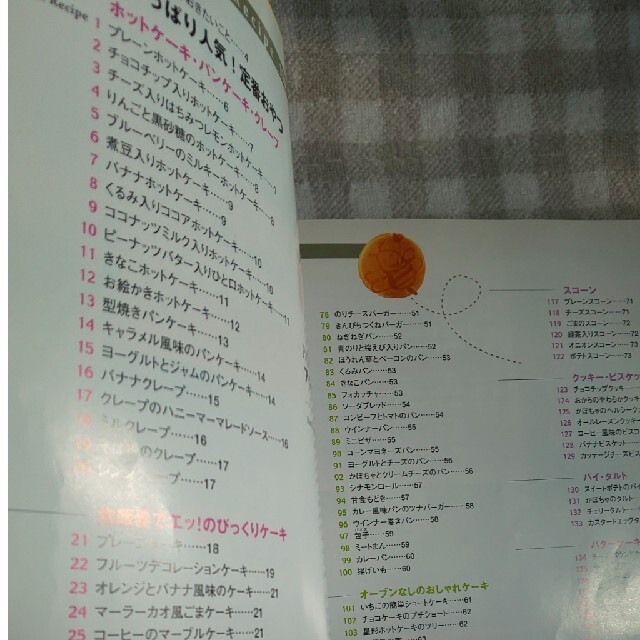 Recipe
おきたいこと……4
っぱり人気！定番おやつ
ホットケーキ・パンケーキ・クレープ
1 プレーンホットケーキ……6
2 チョコチップ入りホットケーキ……7
3 チーズ入りはちみつレモンホットケーキ……7
4 りんごと黒砂糖のホットケーキ……8
5 ブルーベリーのミルキーホットケーキ……8
6 煮豆入りホットケーキ……9
7 バナナホットケーキ……9
8 くるみ入りココアホットケーキ……10
9 ココナッツミルク入りホットケーキ……10
10 ピーナッツバター入りひと口ホットケーキ……11
11 きなこホットケーキ……11
12 お絵かきホットケーキ……12
13 型焼きパンケーキ……13
14 キャラメル風味のパンケーキ……14
15 ヨーグルトとジャムのパンケーキ……14
16 バナナクレープ……15
17 クレープのハニーマーマレードソース……16
ミルクレープ……16
のクレープ……17
ープ……17
エッ！のびっくりケーキ
21 プレーンケーキ……18
22 フルーツデコレーションケーキ……19
23 オレンジとバナナ風味のケーキ……21
24 マーラーカオ風ごまケーキ……21
25 コーヒーのマーブルケーキ
78 のりチーズバーガー……51
79 きんぴらつくねバーガー……51
80 ねぎねぎパン……52
81 青のりと桜えび入りパン……52
82 ほうれん草とベーコンのパン……53
83 くるみパン……53
84 きなこパン……53
85 フォカッチャ……53
86 ソーダブレッド……54
87 コンビーフとトマトのパン……54
88 ウインナーパン……55
89 ミニピザ……55
90 コーンマヨネーズパン……55
91 ヨーグルトとチーズのパン……55
92 かぼちゃとクリームチーズのパン……56
93 シナモンロール……57
94 甘食もどき……57
95 カレー風味パンのツナバーガー……58
96 ウインナー巻きパン……58
97 包子……59
98 ミートまん……59
99 カレーパン……60
100 揚げいも……60
オーブンなしのおしゃれケーキ
101 いちごの簡単ショートケーキ……61
102 チョコケーキのプチショート……62
103 星形ホットケーキのツリー……62
スコーン
117 プレーンスコーン……71
118 チーズスコーン……71
119 ごまのスコーン……72
120 緑茶入りスコーン……72
121 オニオンスコーン……73
122 ポテトスコーン……73
クッキー・ビスケッ
123 チョコチップクッキー
124 おからのやわらかクッキ
125 かぼちゃのヘルシークッ
126 オールレーズンクッキー
127 コーヒー風味のビスコ
128 バナナビスケット
129 カッテージチーズビス
パイ・タルト
130 スイートポテトのパイ
131 かぼちゃのタルト
132 チェリータルト
133 カスタードエッグタ